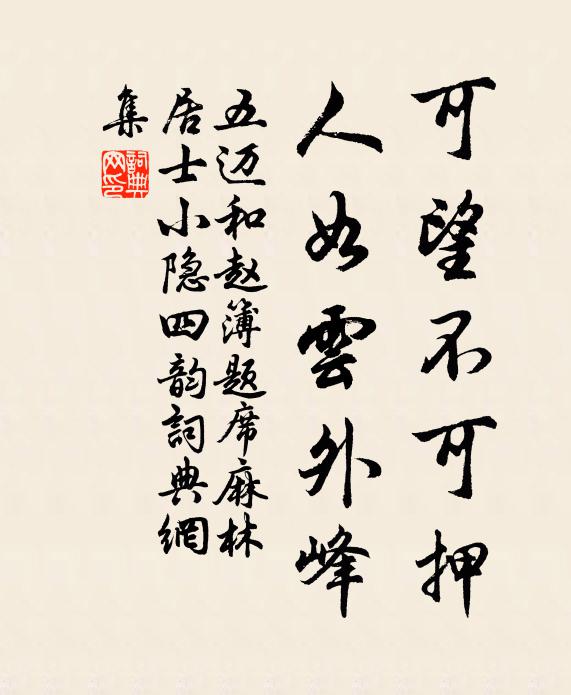 可望不可押
人如雲外峰
五迈和赵簿题席麻林
居士小隐四韵詞典網
集
詞典网印